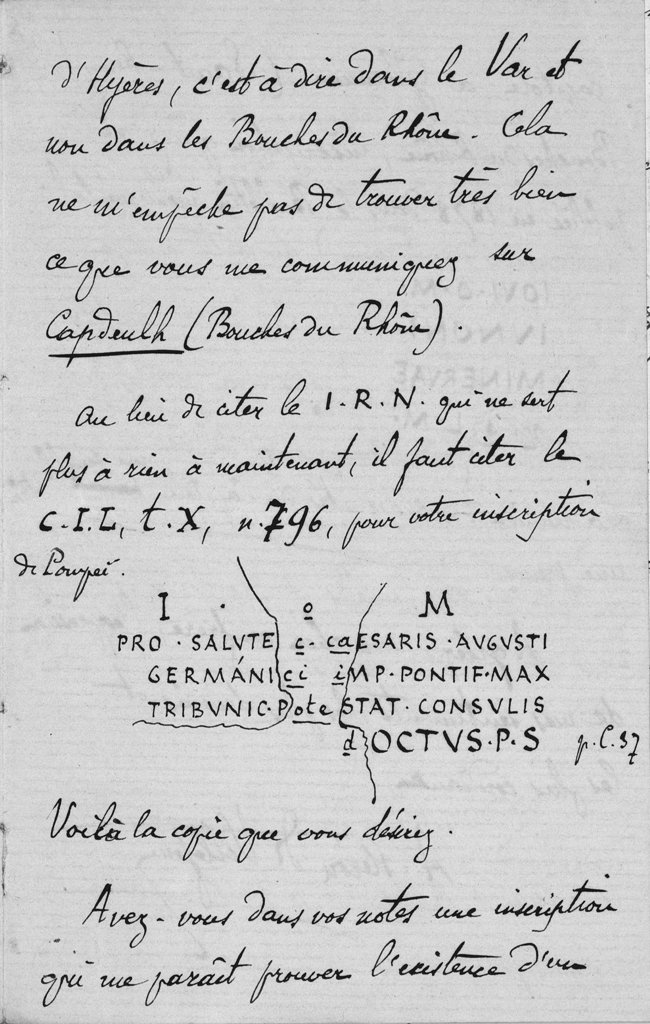 d'Hyères, c'est à dire dans le Var et
non dans les Bouches du Rhône. Cela
ne m'empêche pas de trouver très bien
ce que vous me communiquez sur
Capdeulh (Bouches du Rhône).
Au lieu de citer le I.R.N. qui ne sert
plus à rien à maintenant, il faut citer le
C.I.L, t.X, n.796, pour votre inscription
de Pompeï.
I · o M
PRO · SALVTE c · caESARIS · AVGVSTI
GERMÁNIci iMP · PONTIF · MAX
TRIBVNIC · PoteSTAT · CONSVLIS
dOCTVS · P · S p. C. 37
Voilà la copie que vous désirez.
Avez-vous dans vos notes une inscription
qui me paraît prouver l'existence d'un